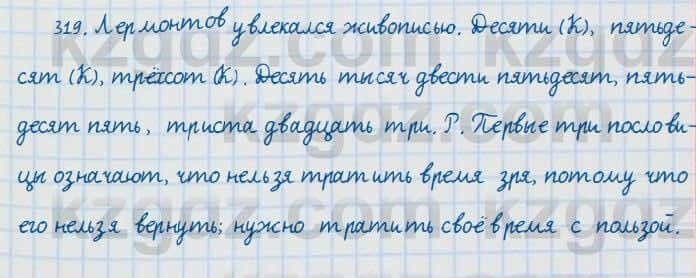 319. Лермонтов увлекался живописью. Десяти (К), пятьде-
сят (К), трёхсот (К). Десять тысяч двести пятьдесят, пять-
десят пять, триста двадцать три. Р. Первые три послови-
цы означают, что нельзя тратить время зря, потому что
его нельзя вернуть; нужно тратить своё время с пользой.